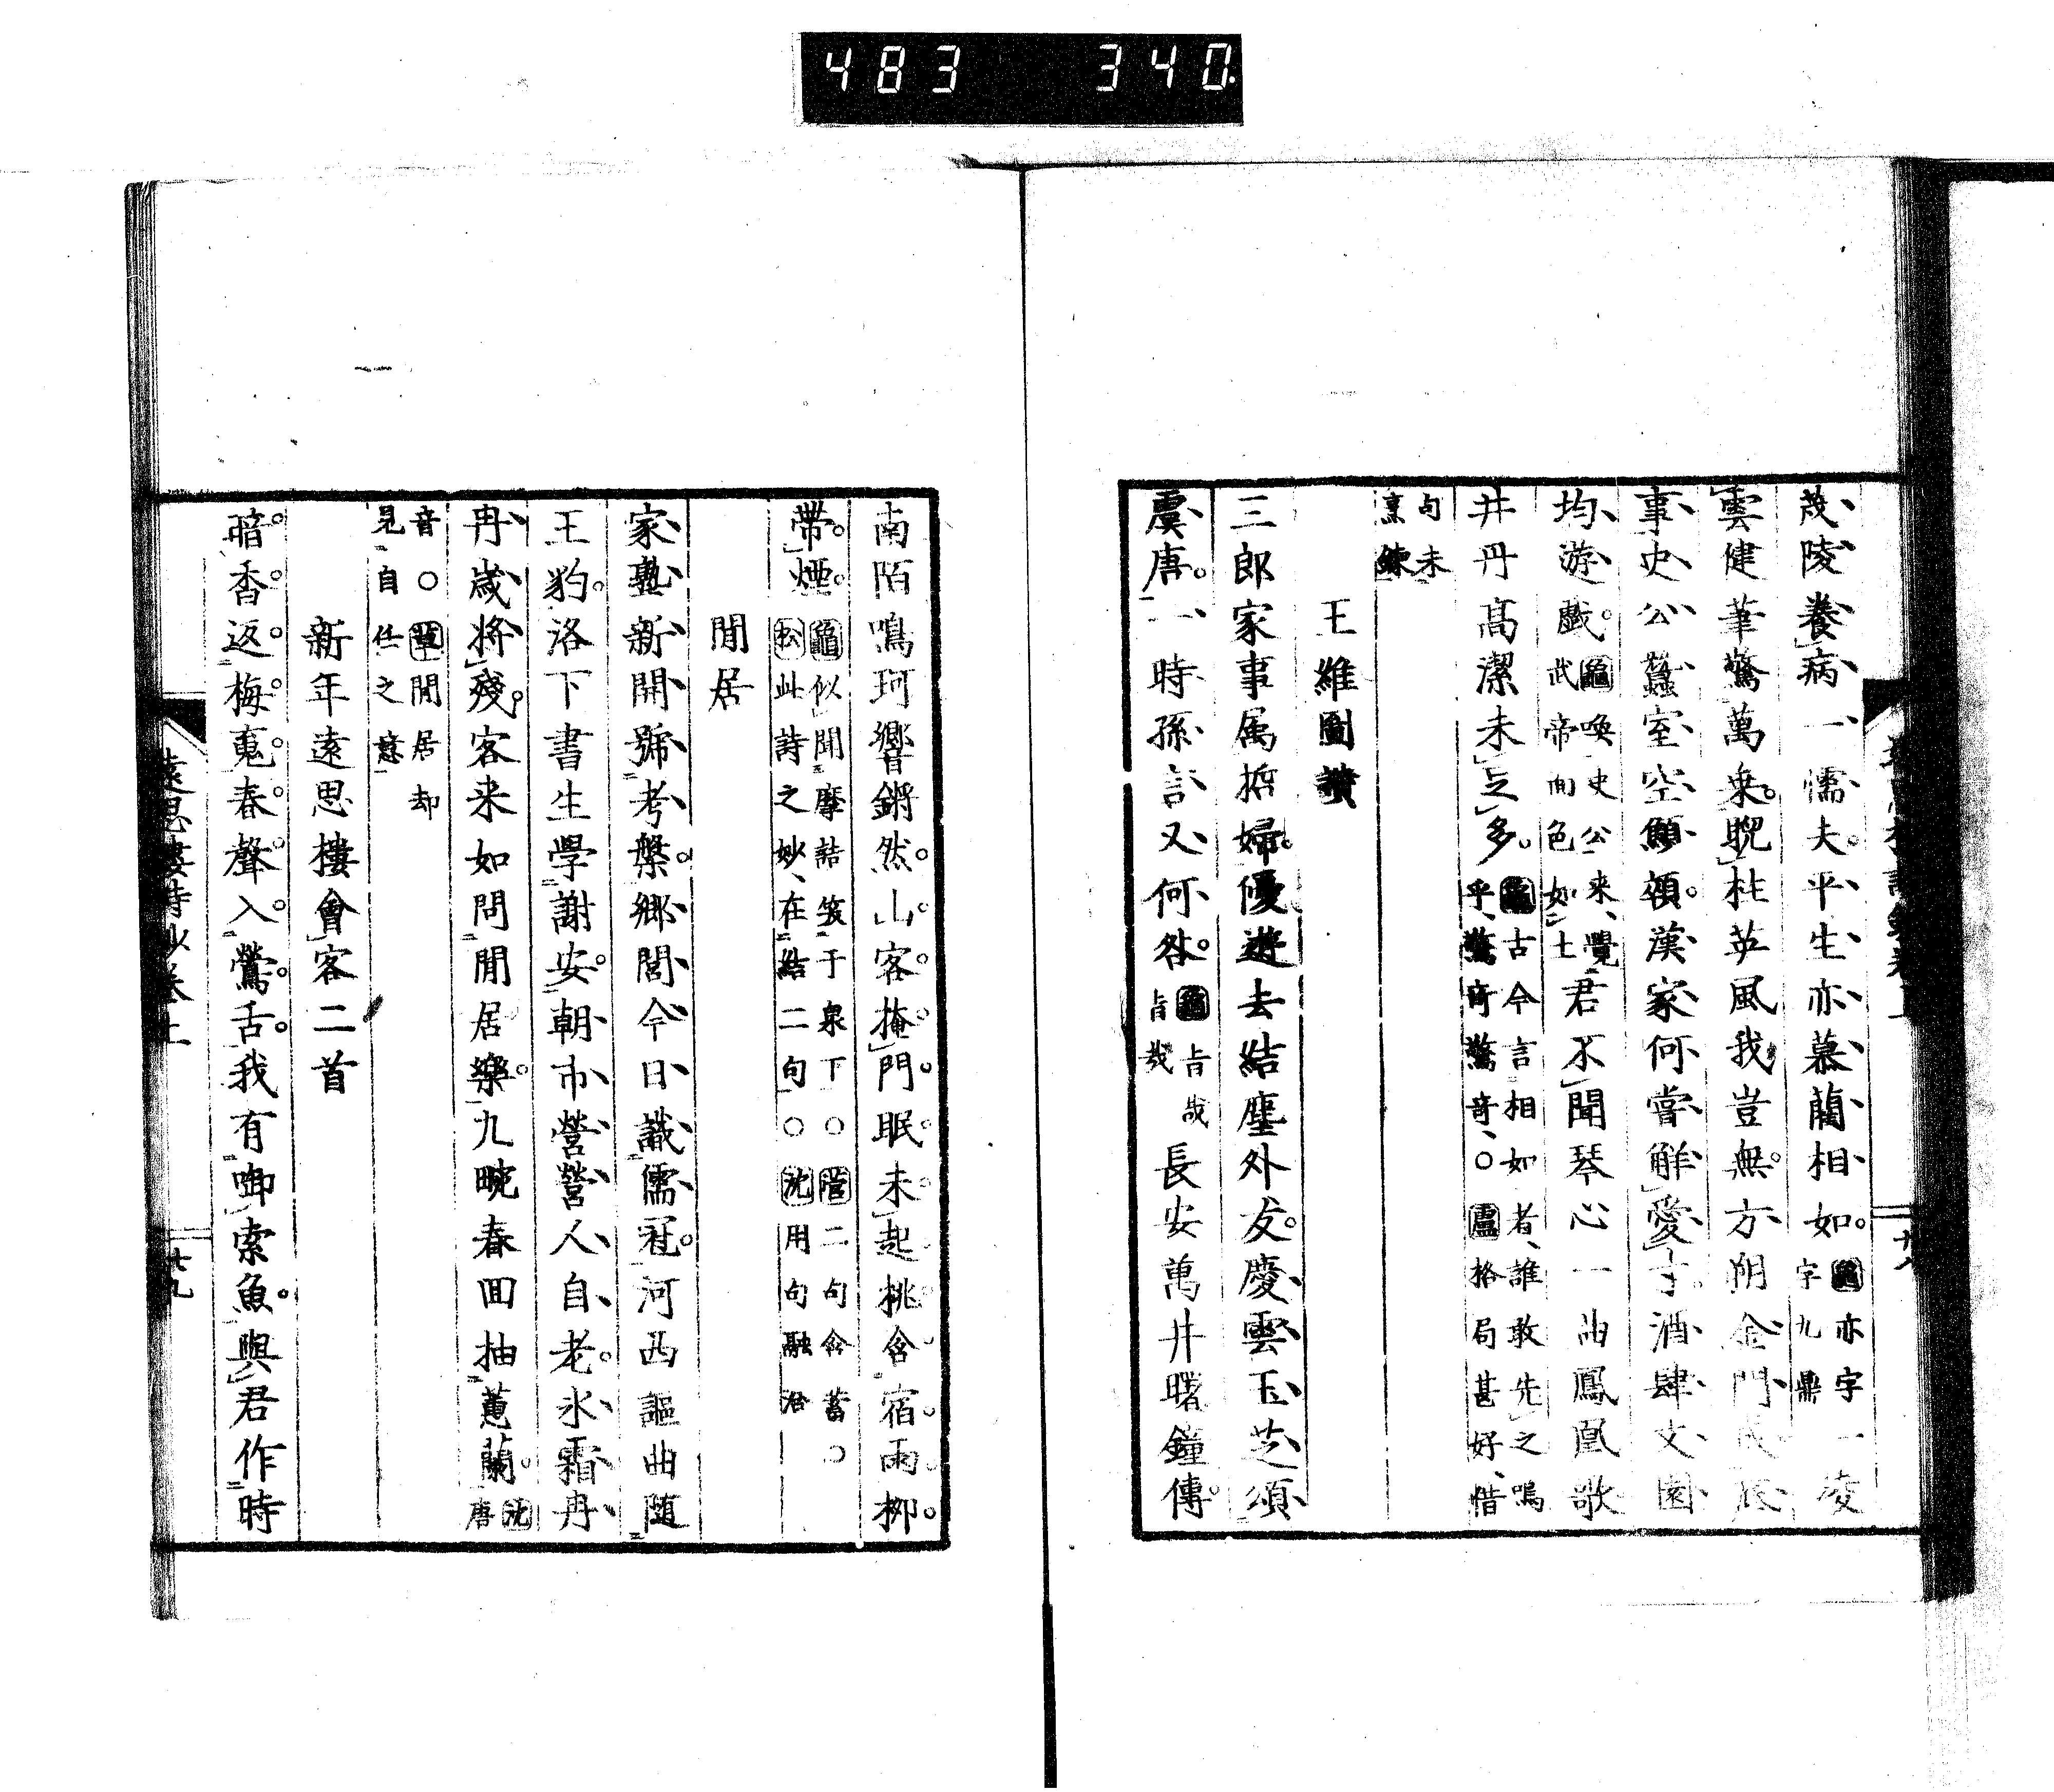 483 340
茂陵養病一濡夫平生亦慕藺相如龜亦字一字九鼎凌
雲健筆驚萬乗睨柱英風我豈無方朔金門
事史公蠶室空顱頟漢家何嘗解愛才酒肆文園
均游戲龜喚史公来覺武帝面色如土君不聞琴心一曲鳳凰歌
井丹高潔未足多龜古今言相如者誰敢先之鳴乎驚奇驚奇○盧格局甚好惜
句未烹錬
王維圖讃
三郎家事属哲婦優遊去結塵外友慶雲玉芝頌
虞唐一時孫言又何咎龜旨哉旨哉長安萬井曙鐘傳
南陌鳴珂響鏘然山客掩門眠未起桃含宿雨柳
帶煙龜似聞摩詰笑于泉下○菅二句含蓄○松此詩之妙在結二句○沈用句融洽
閒居
家塾新開號考槃鄉閭今日識儒冠河西謳曲随
王豹洛下書生學謝安朝市營營人自老氷霜冉
冉歳将殘客来如問閒居樂九畹春回抽蕙蘭沈唐
音○閒居却見自任之意
新年遠思樓會客二首
暗香返梅蒐春聲入鶯舌我有啣索魚與君作時
遠思樓詩鈔卷上
廿九